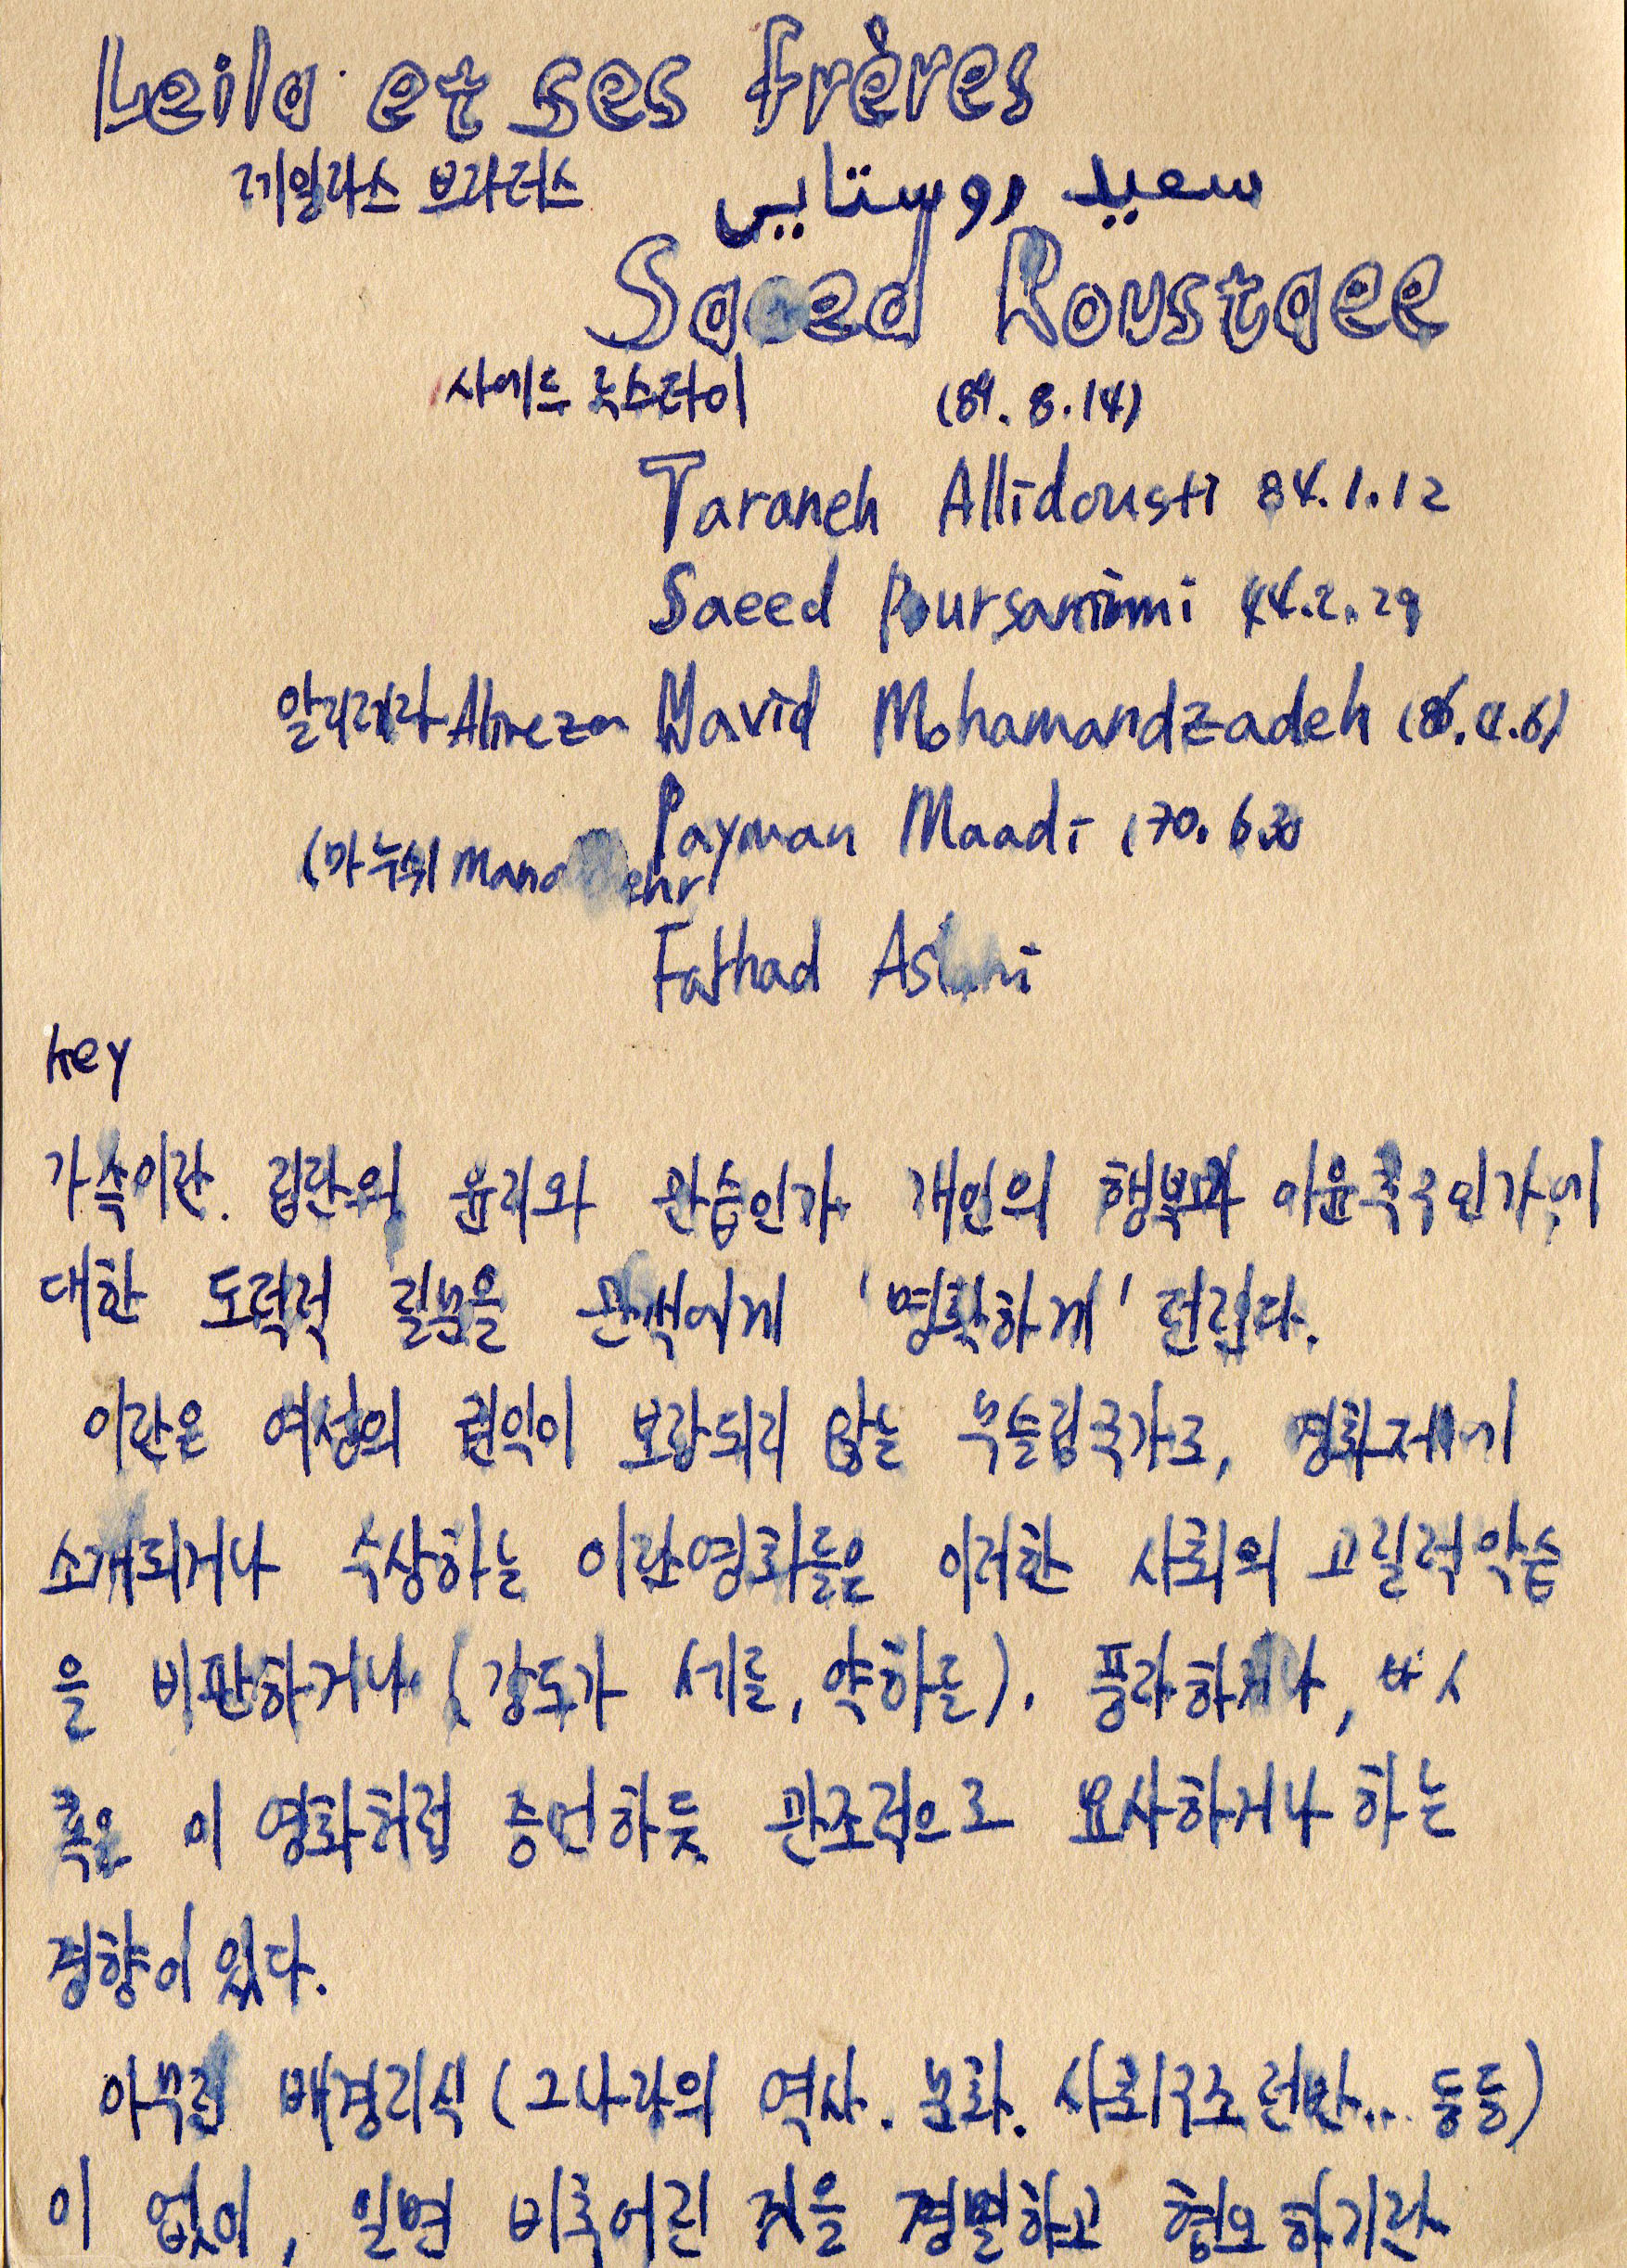 Leila et ses frères
레일라스 브라더스
سعید روستایی
Saeed Roustaee
사에드 루스타이 (89. 8. 14)
Taraneh Allidousti 84. 1. 12
Saeed Poursamimi 44. 2. 29
알리레자 Alireza Navid Mohamandzadeh (86. 4. 6)
Payman Maadi (70. 6. 30
(마누쉬
Farhad Aslani
key
가족이란. 집단의 윤리와 관습인가 개인의 행복과 이윤추구인가에
대한 도덕적 질문을 관객에게 '명확하게' 던진다.
이란은 여성의 권익이 보장되지 않는 무슬림국가로, 영화제에
소개되거나 수상하는 이란영화들은 이러한 사회의 고질적 악습
을 비판하거나 (강도가 세든, 약하든). 풍자하거나,
혹은 이 영화처럼 증언하듯 관조적으로 묘사하거나 하는
경향이 있다.
아무런 배경지식 (그나라의 역사. 문화. 사회구조 전반... 등등)
이 없이, 일면 비추어진 것을 경멸하고 혐오하기란